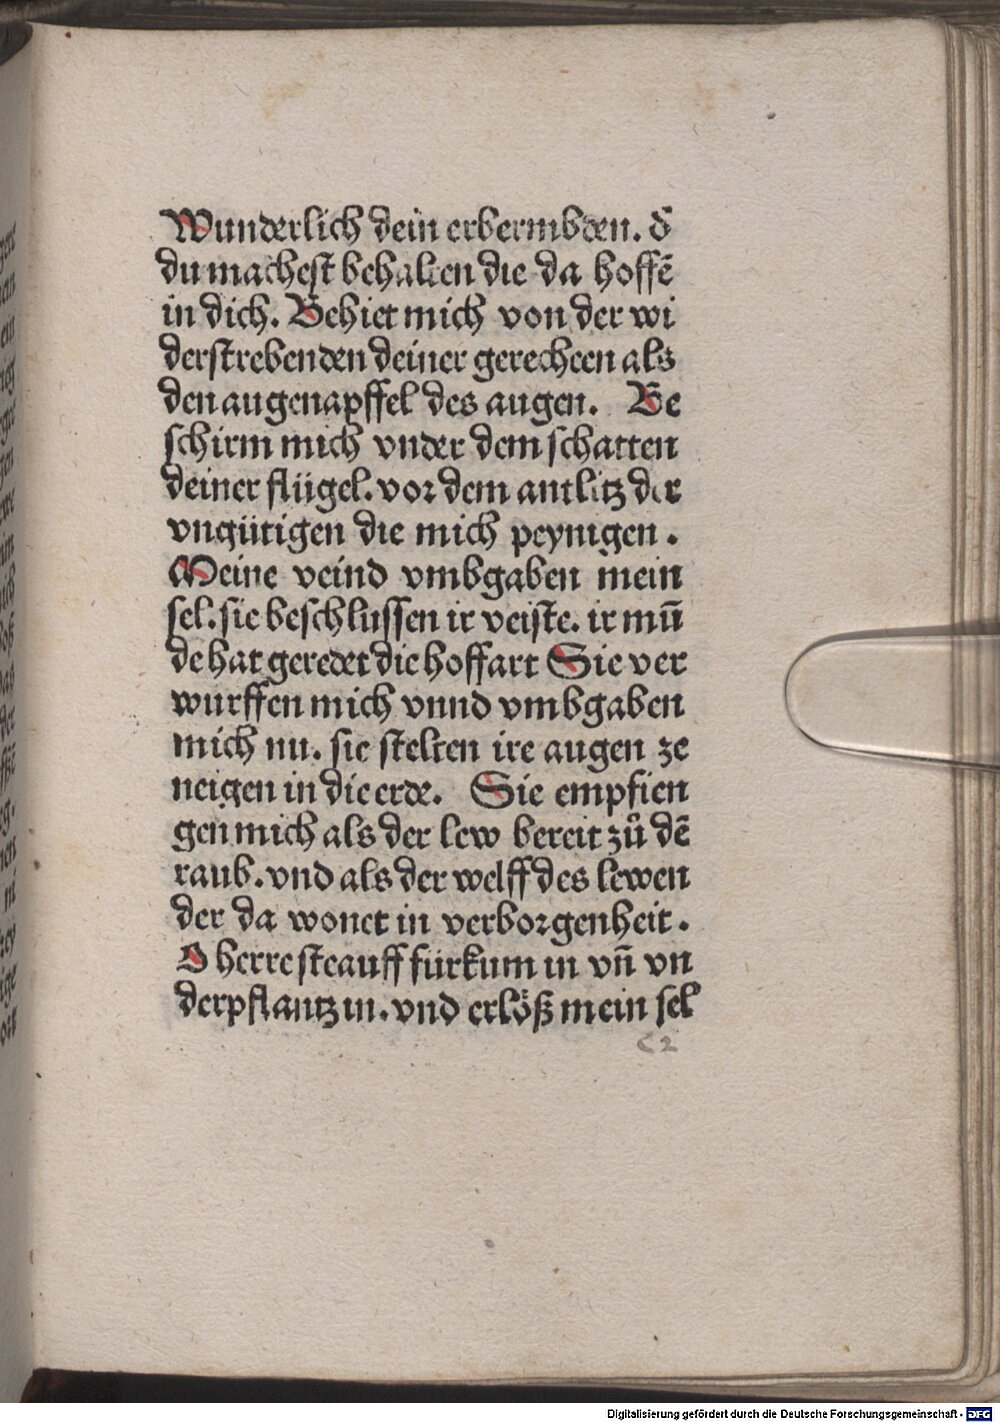 Wunderlich dein erbermbden. d̄
du machest behalten die da hoffē
in dich. Behiet mich von der wi
derstrebenden deiner gerechten als
den augenapffel des augen. Be
schirm mich vnder dem schatten
deiner flügel. vor dem antlitz der
vngütigen die mich peynigen.
Meine veind vmbgaben mein
sel. sie beschlussen ir veiste. ir mūn
de hat geredet die hoffart Sie ver
wurffen mich vnnd vmbgaben
mich nu. sie stelten ire augen ze
neigen in die erde. Sie empfien
gen mich als der lew bereit zů dē
raub. vnd als der welff des lewen
der da wonet in verborgenheit.
O herre steauff fürkum in vn̄ vn
derpflantz in. vnd erlöß mein sel
c2
Digitalisierung gefördert durch die Deutsche Forschungsgemeinschaft - DFG